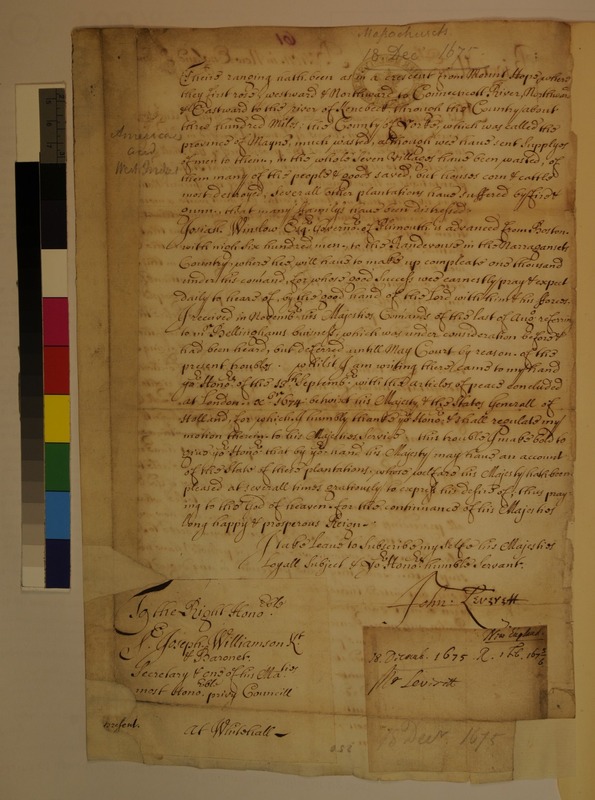 Massachusets
18. Dec. 1675
America
and
West Indies
Theire ranging hath been as in a crescent from Mount Hope, where
they first rose, westward & Northward to Connecticott River, Northward
& Eastward to the river of Kenebeck through the Country about
three hundred Miles; the County of Yorke, which was called the
province of Mayne, much wasted, although wee have sent Supplyes
of men to them, in the whole Seven Villages have been wasted, of
them many of the people & goods saved but houses corn & cattle
most destroyed, severall other plantations have suffered by fire &
that many familys have been distressed
Josiah Winslow Esq. Governr. of Plimouth is advanced from Boston
with nigh Six hundred men, to the Randevouse in the Narraganset
Country, where hee will have to make up compleate one thousand
under his comand, for whose good Success wee earnestly pray & expect
daily to heare of, by the good hand of the Lord with him & his fforces.
I received in Novembr. his Majesties Comands of the last of Augt. referring
to mr. Bellinghams business, which was under consideration before &
had been heard, but deferred untill May Court by reason of the
present troubles. whilst I am writing there came to my hand
yor. Honors. of the 15th Septembr. with the articles of peace concluded
at London 1674. betwixt his Majesty & the States Generall of
Holland, for which I humbly thanke yor. Honor. & shall regulate my
motion therein to his Majesties Service. this trouble I make bold to
give yor. Honor. that by yor. hand his Majesty may have an account
of the State of these plantations, whose welfare his Majesty hath been
pleased at severall times gratiously to express the desire of, thus pray
ing to the God of heaven for the continuance of his Majesties
long happy & prosperous Reign.
I take Leave to Subscribe my Selfe his Majesties
Loyall Subject & Yor. Honors. humble Servant.
John: Leverett
To the Right Honoble
Sr. Joseph Williamson Kt
& Baronet
Secretary & one of his Maties
most Honoble. privy Councill
present.
At Whitehall
New England.
18. Decemb. 1675 R. 1 Feb. 1675/6
Mr Leverett
18 Decr. 1675